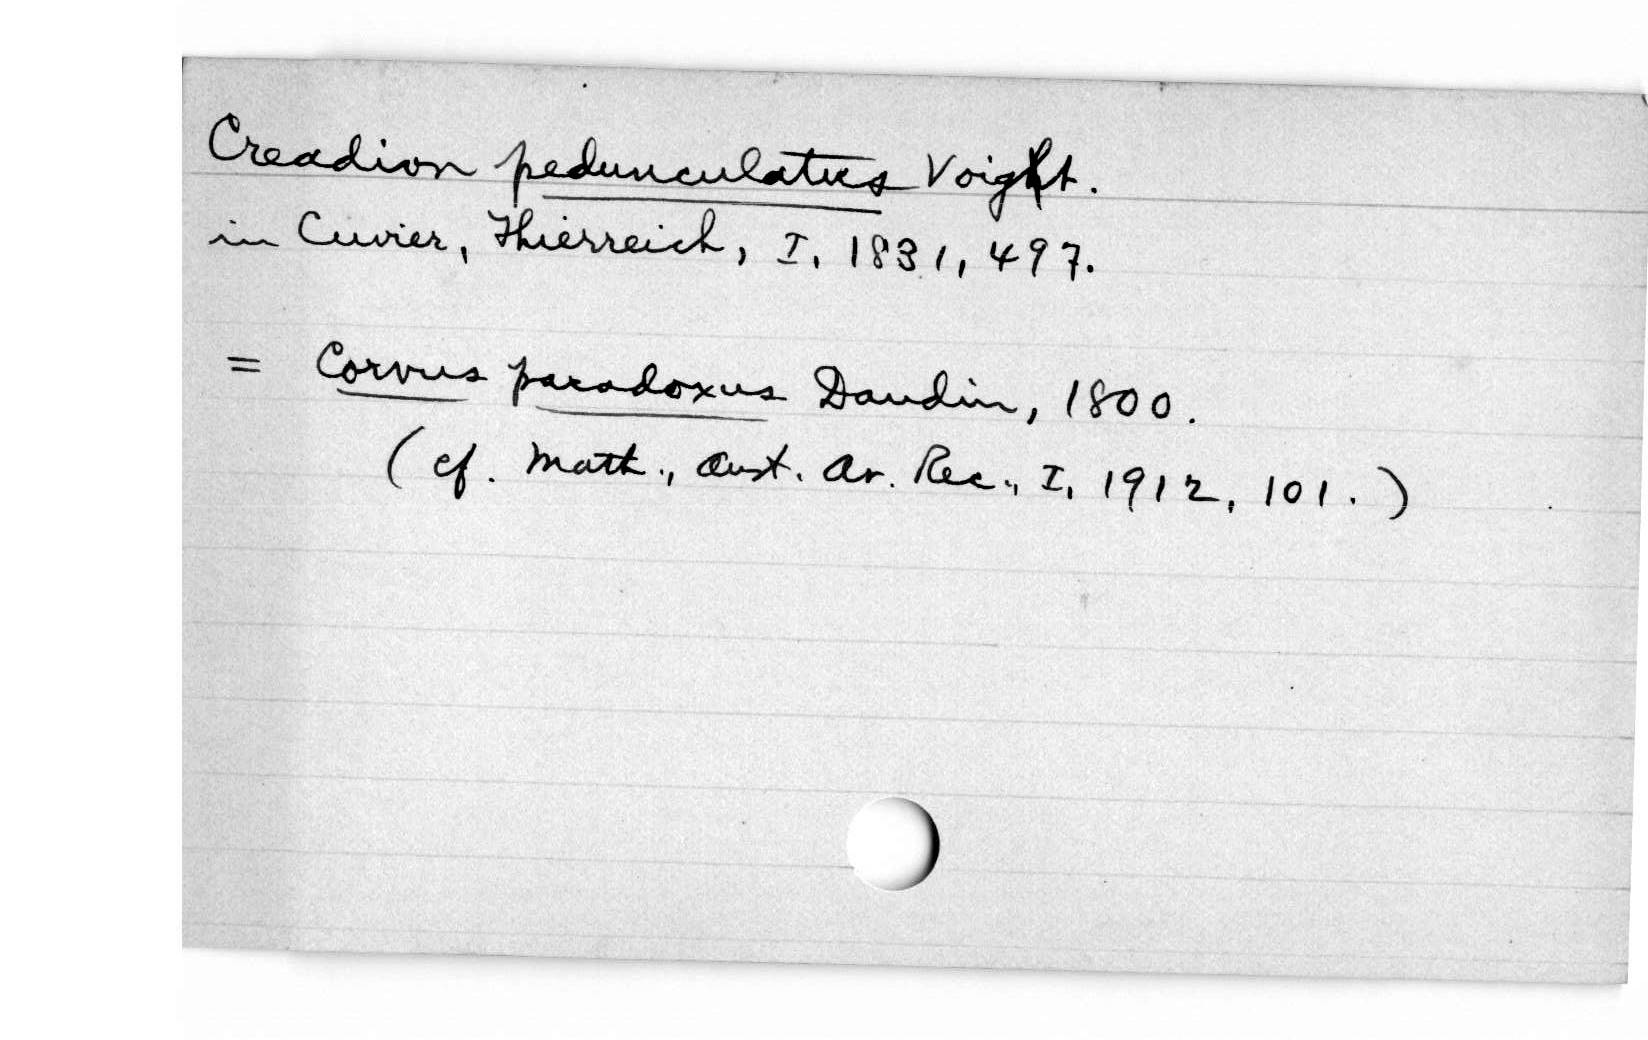 Creadion pedunculatus Voigt.
in Cuvier, Thierreich, I, 1831, 497.
= Corvus paradoxus Daudin, 1800.
(cf. Math., Aust. Av. Rec., I, 1912, 101.)